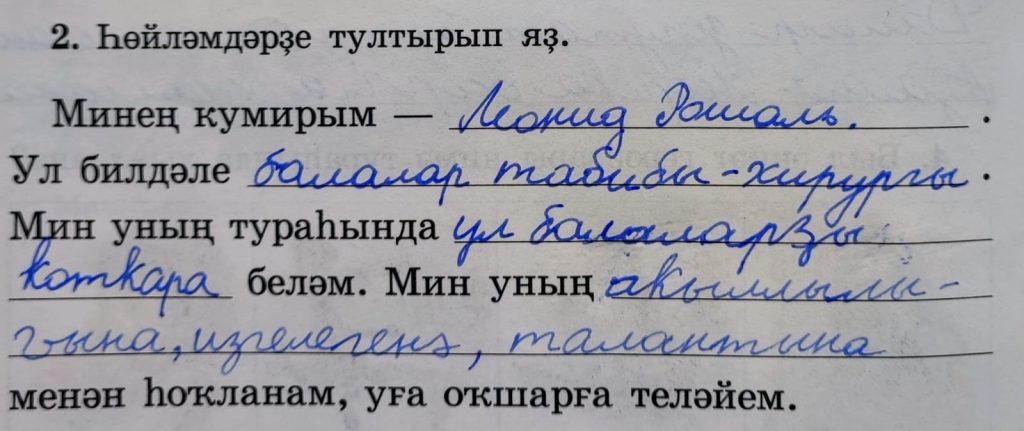 2. Һөйләмдәрҙе тултырып яҙ.
Минең кумирым — Леонид Рошаль. .
Ул билдәле балалар табибы-хирургы .
Мин уның тураһында ул балаларҙы
коткара беләм. Мин уның акыллылы-
гына, изгелегенә, талантина
менән һоҡланам, уға оҡшарға теләйем.